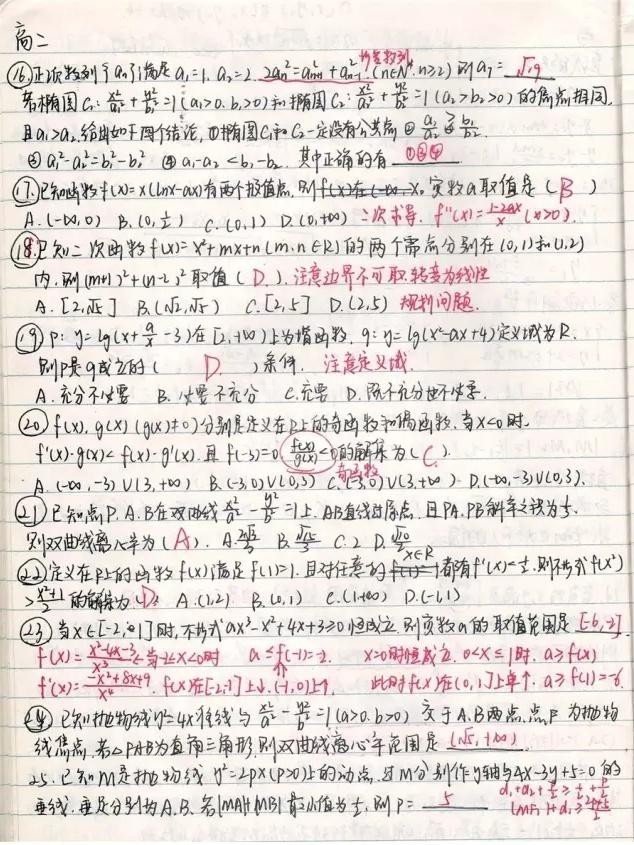 高二
⑯正项数列{an}满足a₁=1, a₂=2, 2an²=an+1²+an-1² 等差数列 (n∈N*, n≥2) 则a₇= √19
若椭圆C₁: x²/a₁²+y²/b₁²=1(a₁>0, b₁>0)和椭圆C₂: x²/a₂²+y²/b₂²=1(a₂>b₂>0)的焦点相同,
且a₁>a₂, 给出如下四个结论, ①椭圆C₁和C₂一定没有公共点 ② a₁/a₂ > b₁/b₂
③ a₁²-a₂²=b₁²-b₂² ④ a₁-a₂<b₁-b₂. 其中正确的有 ①③④
⑰.已知函数f(x)=x(lnx-ax)有两个极值点, 则 实数a取值是( B )
A.(-∞,0) B.(0,1/2) C.(0,1) D.(0,+∞) 二次求导. f''(x)=(1-2ax)/x (x>0).
⑱.已知二次函数f(x)=x²+mx+n(m,n∈R)的两个零点分别在(0,1)和(1,2)
内, 则(m+1)²+(n-2)²取值( D ). 注意边界不可取.转变为线性
A.[2,√5] B.(√2,√5) C.[2,5] D.(2,5) 规划问题.
⑲ P: y=lg(x+a/x-3)在[2,+∞)上为增函数, q: y=lg(x²-ax+4)定义域为R.
则p是q成立的( D )条件. 注意定义域.
A.充分不必要 B.必要不充分 C.充要 D.既不充分也不必要.
⑳ f(x), g(x)(g(x)≠0)分别是定义在R上的奇函数和偶函数, 当x<0时,
f'(x)·g(x)<f(x)·g'(x), 且f(-3)=0, f(x)/g(x)<0的解集为( C ). 奇函数
A.(-∞,-3)∪(3,+∞) B.(-3,0)∪(0,3) C.(-3,0)∪(3,+∞) D.(-∞,-3)∪(0,3).
㉑ 已知点P.A.B在双曲线x²/a²-y²/b²=1上, AB直线过原点, 且PA.PB斜率之积为1/3.
则双曲线离心率为(A). A. 2√3/3 B. √15/3 C.2 D.
㉒定义在R上的函数f(x)满足f(1)=1, 且对任意的 x∈R 都有f'(x)<1/2, 则不等式f(x²)
>(x²+1)/2 的解集为(D) A.(1,2) B.(0,1) C.(1,+∞) D.(-1,1)
㉓ 当x∈[-2,1]时, 不等式ax³-x²+4x+3≥0恒成立, 则实数a的取值范围是 [-6,-2]
f(x)=(x²-4x-3)/x³ ≤ 当-2≤x<0时 a≤f(-1)=-2. x=0时恒成立. 0<x≤1时. a≥f(x)
f'(x)=(-x²+8x+9)/x⁴. f(x)在[-2,-1]上↓.(-1,0)上↑. 此时f(x)在(0,1]上单↑. a≥f(1)=-6.
㉔ 已知抛物线y²=4x准线与x²/a²-y²/b²=1(a>0.b>0) 交于A.B两点, 点F为抛物
线焦点, 若△FAB为直角三角形, 则双曲线离心率范围是 (√5,+∞)
25. 已知M是抛物线 y²=2px(p>0)上的动点, 过M分别作y轴与4x-3y+5=0的
垂线, 垂足分别为A.B. 若|MA|+|MB|最小值为1/2, 则p= 5